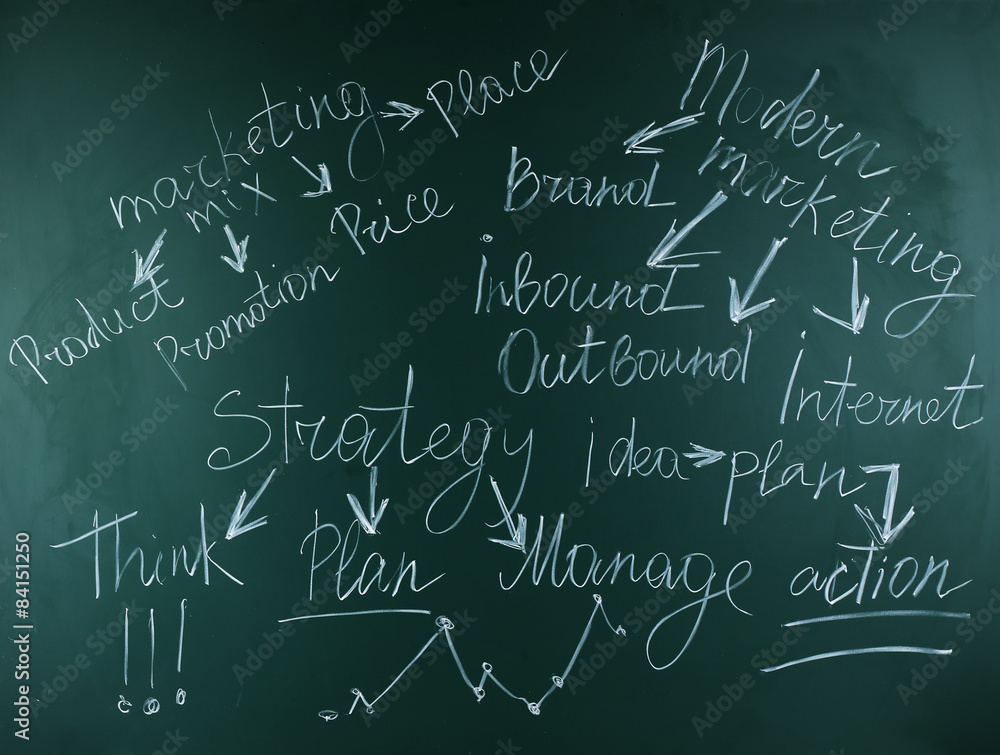 marketing → place
mix
Price
Product
Promotion
Modern
marketing
Brand
Inbound
Outbound
Internet
Strategy
idea → plan
action
Think
!!!
Plan
Manage
Adobe Stock | #84151250